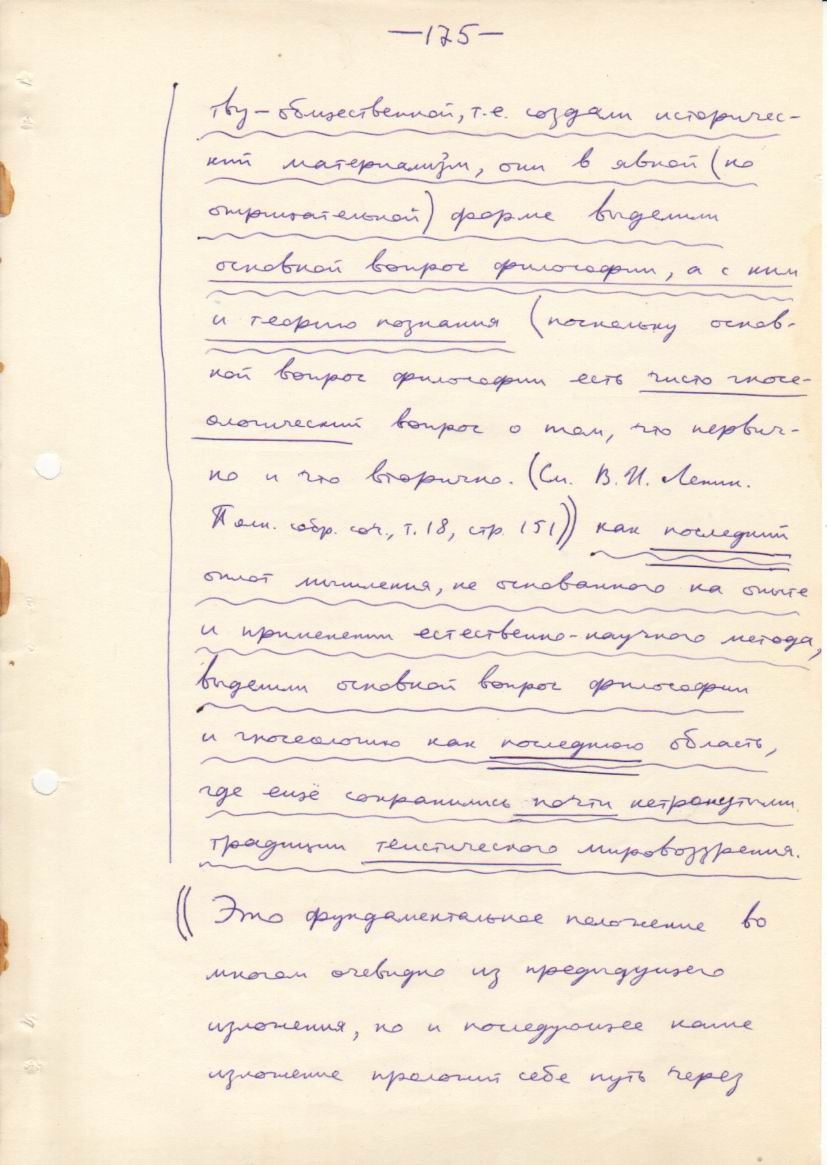 —175—
тву — общественной, т.е. создали историчес-
кий материализм, они в явной (но
отрицательной) форме выделили
основной вопрос философии, а с ним
и теорию познания (поскольку основ-
ной вопрос философии есть чисто гносе-
ологический вопрос о том, что первич-
но и что вторично. (См. В.И. Ленин.
Полн. собр. соч., т. 18, стр. 151)) как последний
оплот мышления, не основанного на опыте
и применении естественно-научного метода,
выделили основной вопрос философии
и гносеологию как последнюю область,
где ещё сохранились почти нетронутыми
традиции теистического мировоззрения.
(( Это фундаментальное положение во
многом очевидно из предыдущего
изложения, но и последующее наше
изложение проложит себе путь через